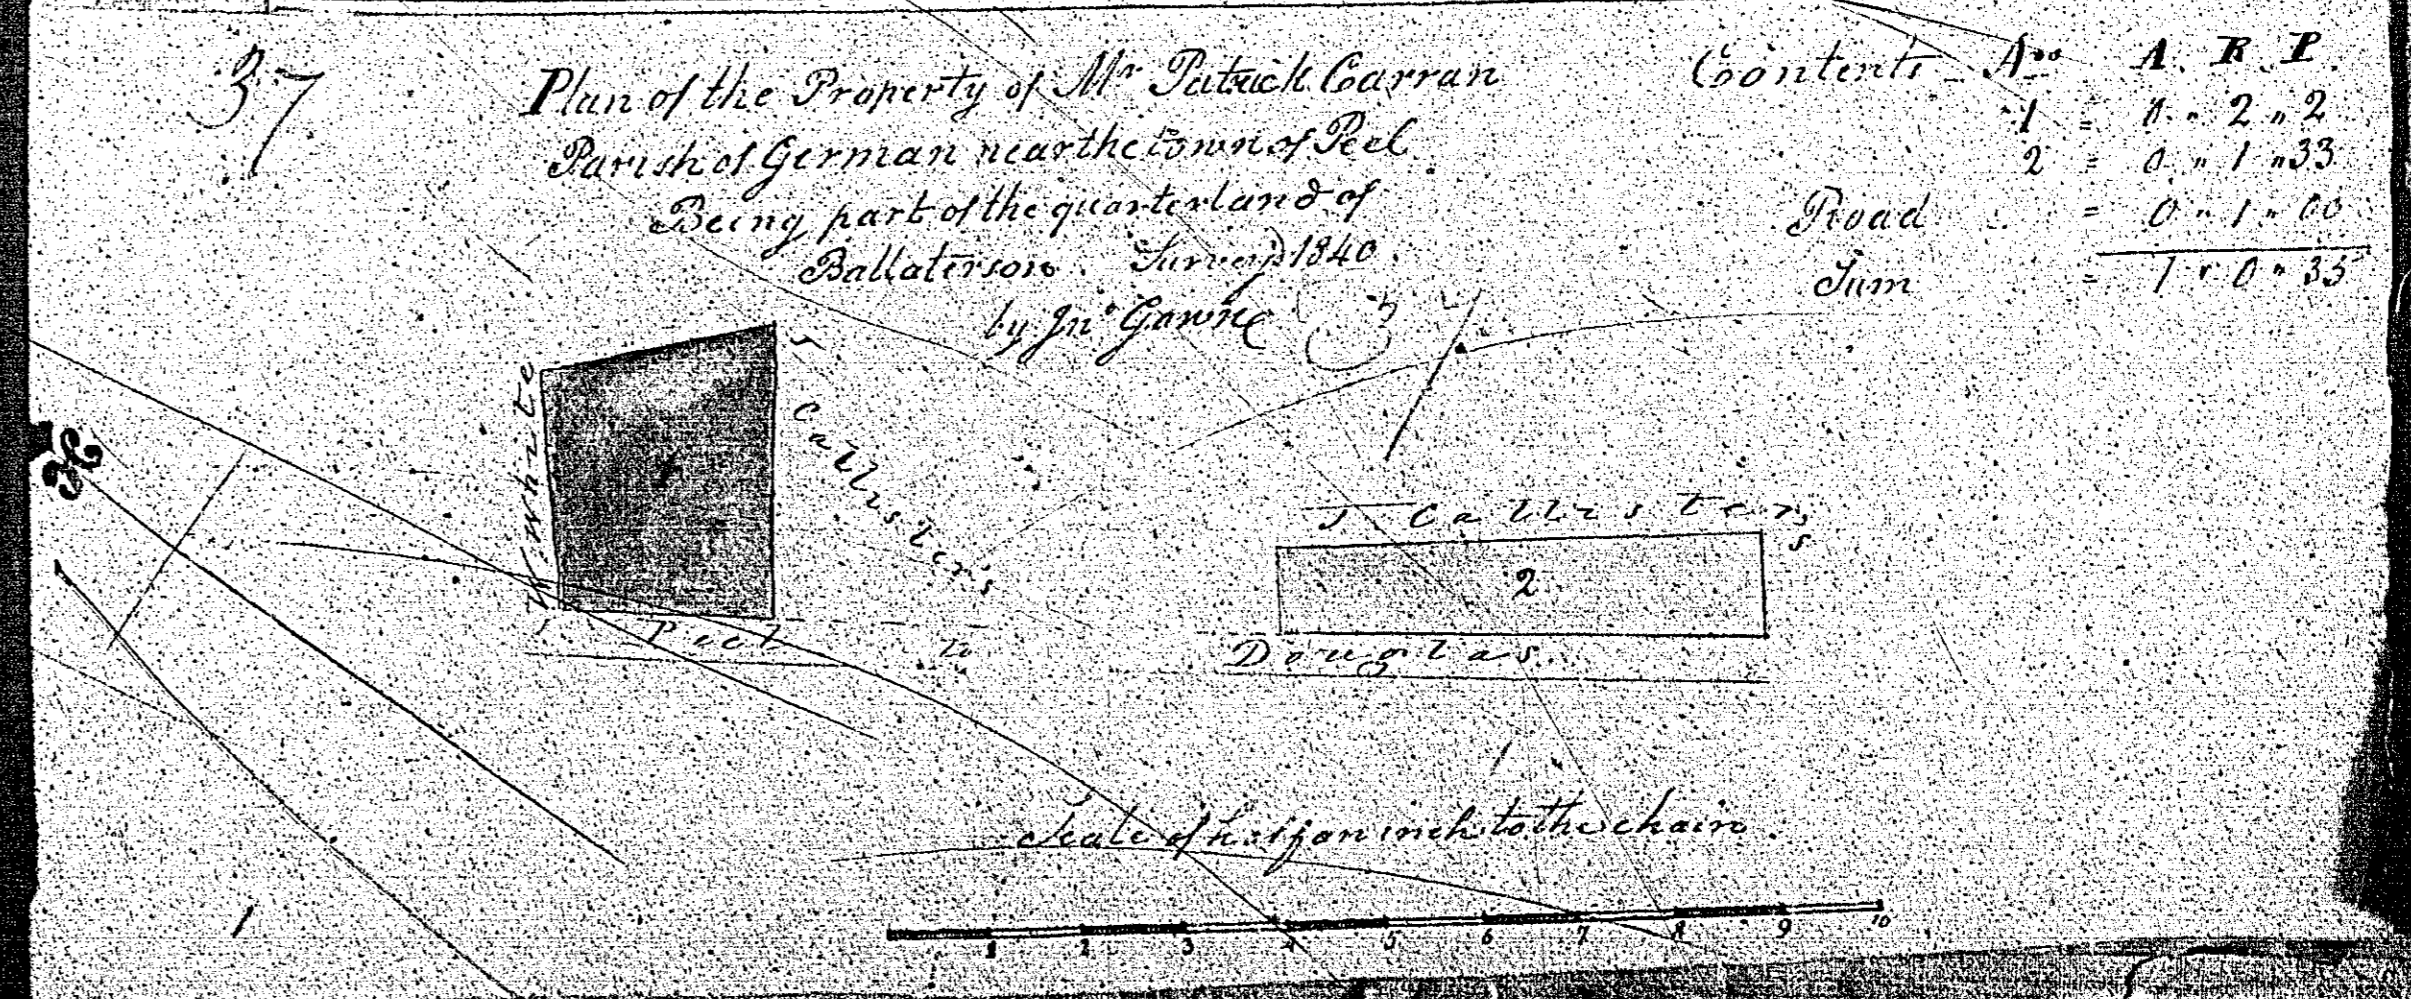 37
Plan of the Property of Mr Patrick Carran
Parish of German near the town of Peel
Being part of the quarterland of
Ballaterson. Survey'd 1840.
by Jno Gawne
Contents Nos A. R. P.
1 = 0 " 2 " 2
2 = 0 " 1 " 33
Road = 0 " 1 " 00
Sum = 1 " 0 " 35
White
J Callister's
1
Peel to Douglas.
J Callisters
2
Scale of half an inch to the chain.
1 2 3 4 5 6 7 8 9 10